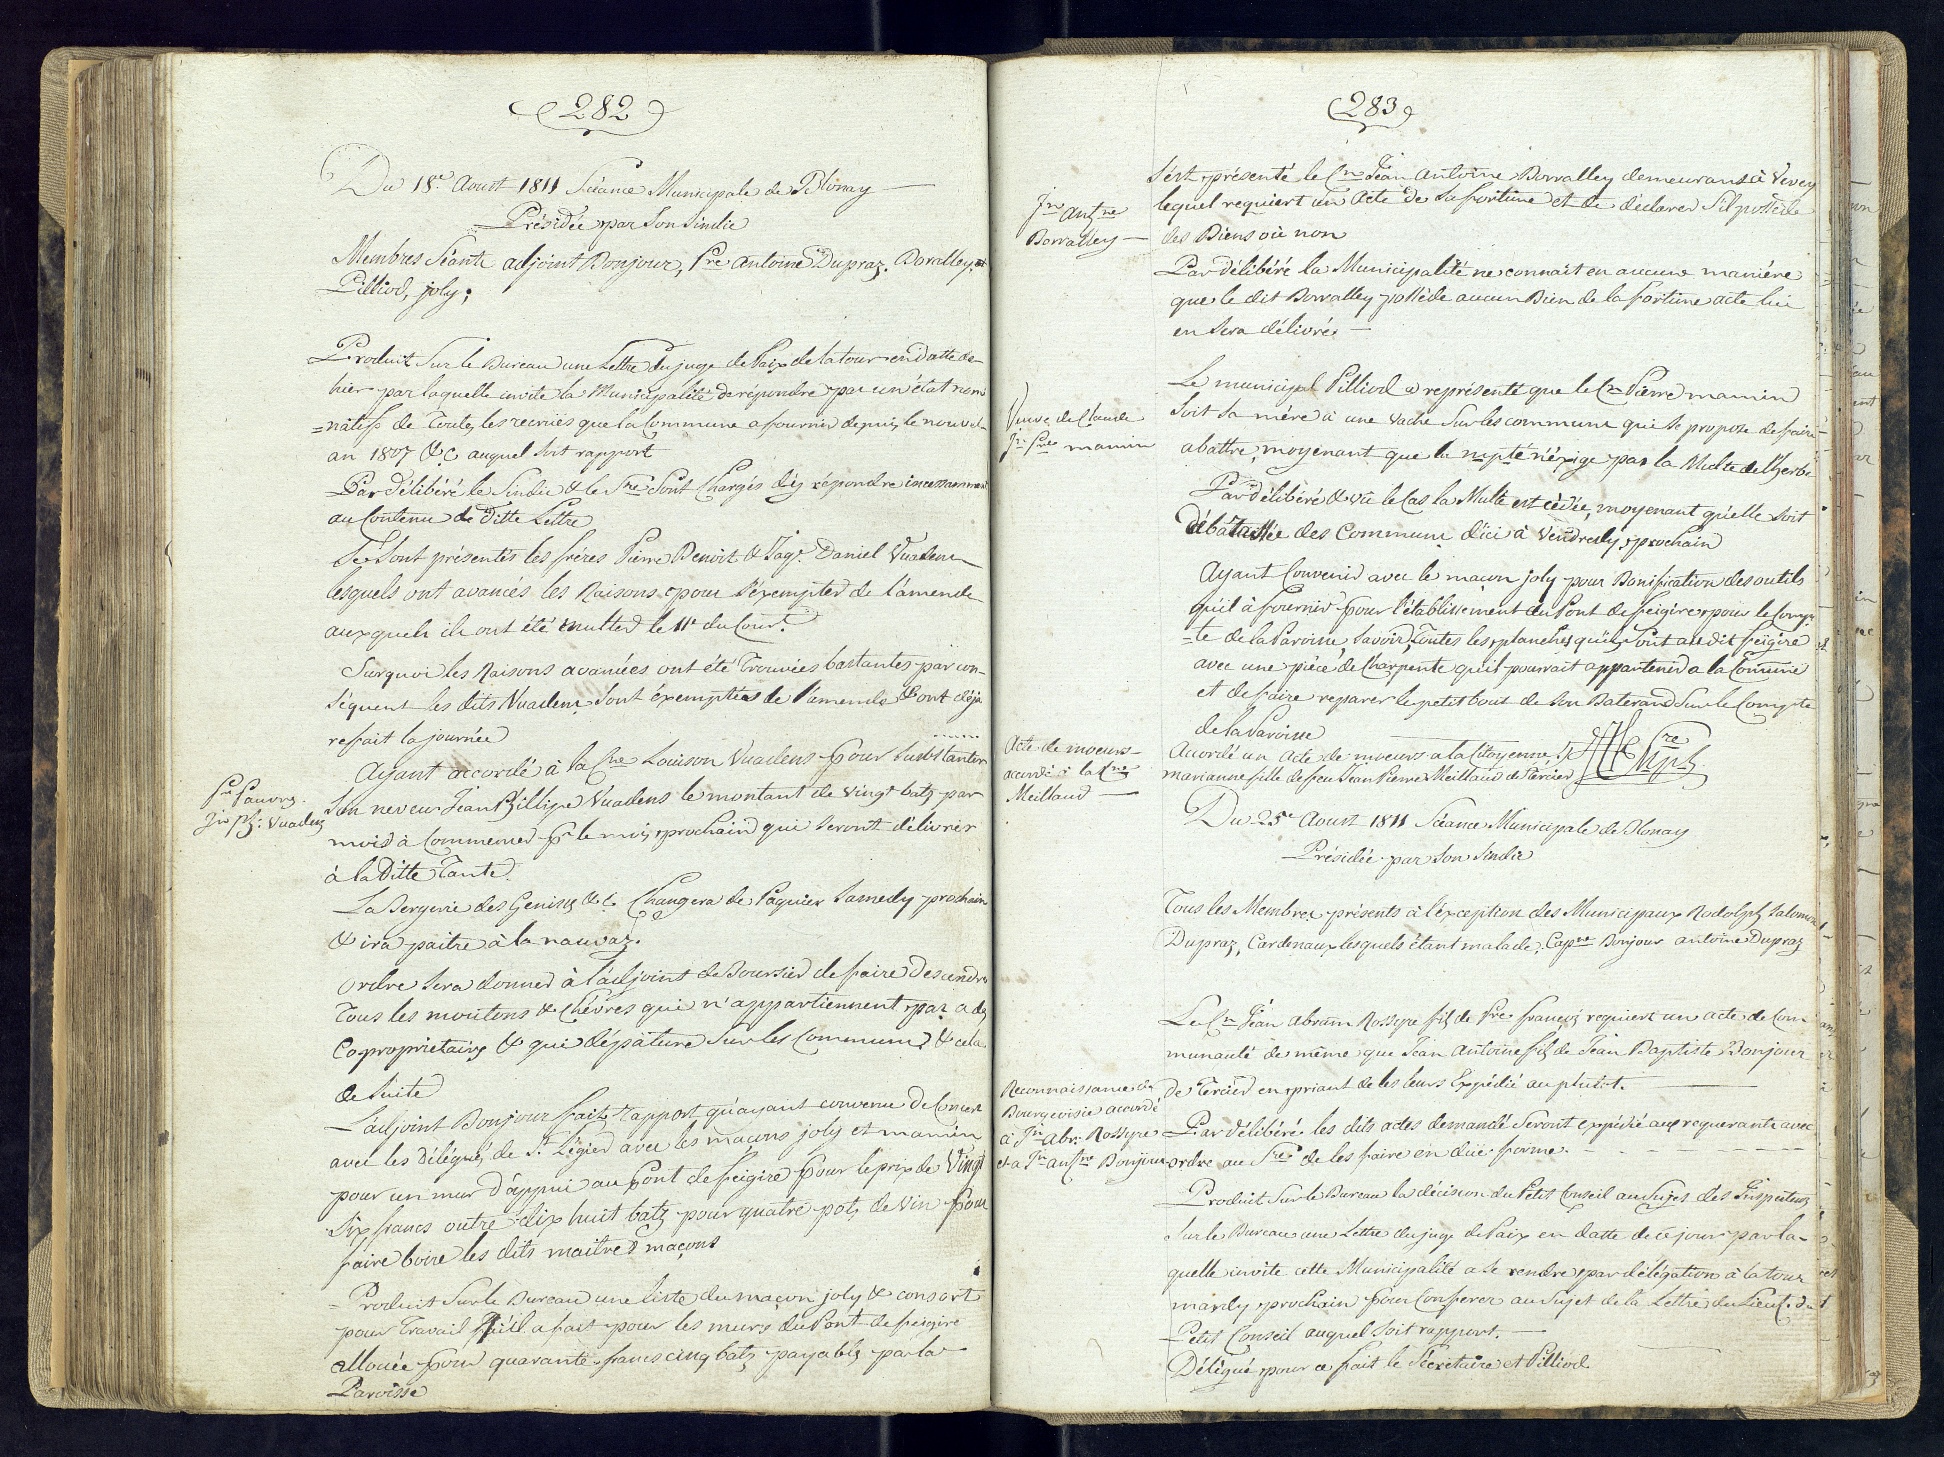 282
Du 18.e Aoust 1811 Séance Municipale de Blonay
Présidée par Son Sindic
Membres Séants adjoint Bonjour, Pre Antoine Dupraz. Boralley. &
Pilliod, joly;
Produit Sur le Bureau une Lettre du juge de Paix de la tour en datte de
hier par laquelle invite la Municipalité de répondre par un état nomi
=natifs de Toutes les recrües que la Commune a fournir depuis le nouvel
an 1807 &.C. auquel soit rapport
Par délibéré le Sindic & le Sre Sont Chargés d'ÿ répondre incessamment
au Contenu de ditte Lettre
Sé Sont présentés les fréres Pierre Benoit & Jaqs. Daniel Vuadens
lesquels ont avancés les Raisons pour S'éxempter de l'amende
auxquels ils ont été multter le 11e du Court.
Surquoi les Raisons avancées ont été Trouvées bastantes par con-
séquent les dits Vuadens Sont éxemptés de l'amende & ont déja
refait la journée
Pr Pauvre.
Jn Ph: Vuadens
Ayant accordé à la Cne Louison Vuadens pour Substanter
Son neveu Jean Phillipe Vuadens le montant de vingt batz par
mois à Commencer pr le mois prochain qui Seront délivrer
à la Ditte Tante.
La Bergerie des Genisses &.c. Changera de Paquier Samedy prochain
& ira paitre à la nauvaz.
Ordre Sera donner à l'adjoint de Boursier de faire descendre
Tous les moutons & Chévres qui n'appartiennent pas a des
Copropriétaires & qui dépature Sur les Communs & cela
de Suite
L'adjoint Bonjour fait rapport qu'ayant convenu De Concert
avec les délégués de St. Légier avec les maçons joly et mamin
pour un mur d'appui au Pont de feigire pour le prix de Vingt
Six francs outre dix huit batz pour quatre pots de vin pour
faire boire les dits maitres maçons
Produit Sur le Bureau une liste du maçon joly & consort
pour Travail qu'il a fait pour les murs du Pont de feigire
allouée pour quarante francs cinq batz payables par la
Paroisse
283
Jn antne
Borralley
S'est présenté le Cn Jean Antoine Borralley demeurant à Vevey
lequel requiert un Acte de Sa fortune et de déclarer S'il posséde
des Biens où non
Par délibéré la Municipalité ne connait en aucune maniére
que le dit Borralley posséde aucun Bien de la fortune acte lui
en Sera délivré.
Veuve de Claude
Jn Pre mamin
Le municipal Pilliod a représenté que le Cn Pierre mamin
Soit Sa mére à une vache Sur les communs qui Se propose de faire
abattre, moyenant que la mpté n'éxige pas la Multe de l'herbe
Par délibéré & vû le Cas la Multe est cédée, moyenant qu'elle Soit
débataillée des Communs d'ici à Vendredy prochain
Ayant Convenir avec le maçon joly pour Bonification des outils
qu'il à fournir pour l'établissement du Pont de feigire pour le Comp=
=te de la Paroisse, Savoir, toutes les planches qu'ils Sont au dit feigire
avec une piéce de Charpente qu'il pourrait appartenir a la Commune
et de faire reparer le petit bout de Son Baterand Sur le Compte
de la Paroisse
Acte de moeurs
accordé à la Cne
Meillaud
Accordé un Acte de moeurs a la Citoyenne
marianne fille de feu Jean Pierre Meillaud de Tercier
Du 25e Aoust 1811 Séance Municipale de Blonay
Présidée par Son Sindic
Tous les Membres présents à l'éxception des Municipaux Rodolph Salomon
Dupraz, Cardenaux lesquels étant malade, Capne Bonjour antoine Dupraz
Le Cn Jean Abram Rossyre fils de Pre françois requiert un acte de Com
munauté de même que Jean Antoine fils de Jean Baptiste Bonjour
de Tercier en priant de les leurs Expédié au plutot.
Reconnaissance de
Bourgeoisie accordé
à Jn abr. Rossyre
et a Jn antne Bonjour
Par délibéré les dits actes demandé Seront expédié aux requerants avec
ordre au Sre de les faire en düe forme.
Produit Sur le Bureau la décision du Petit Conseil au Sujet des Inspecteurs
Sur le Bureau une Lettre du juge de Paix en datte de ce jour par la-
quelle invite cette Municipalité a Se rendre par délégation à la tour
mardy prochain pour Conferer au Sujet de la Lettre du Lieut. du
Petit Conseil auquel Soit rapport.
Délégué pour ce fait le Sécretaire et Pilliod